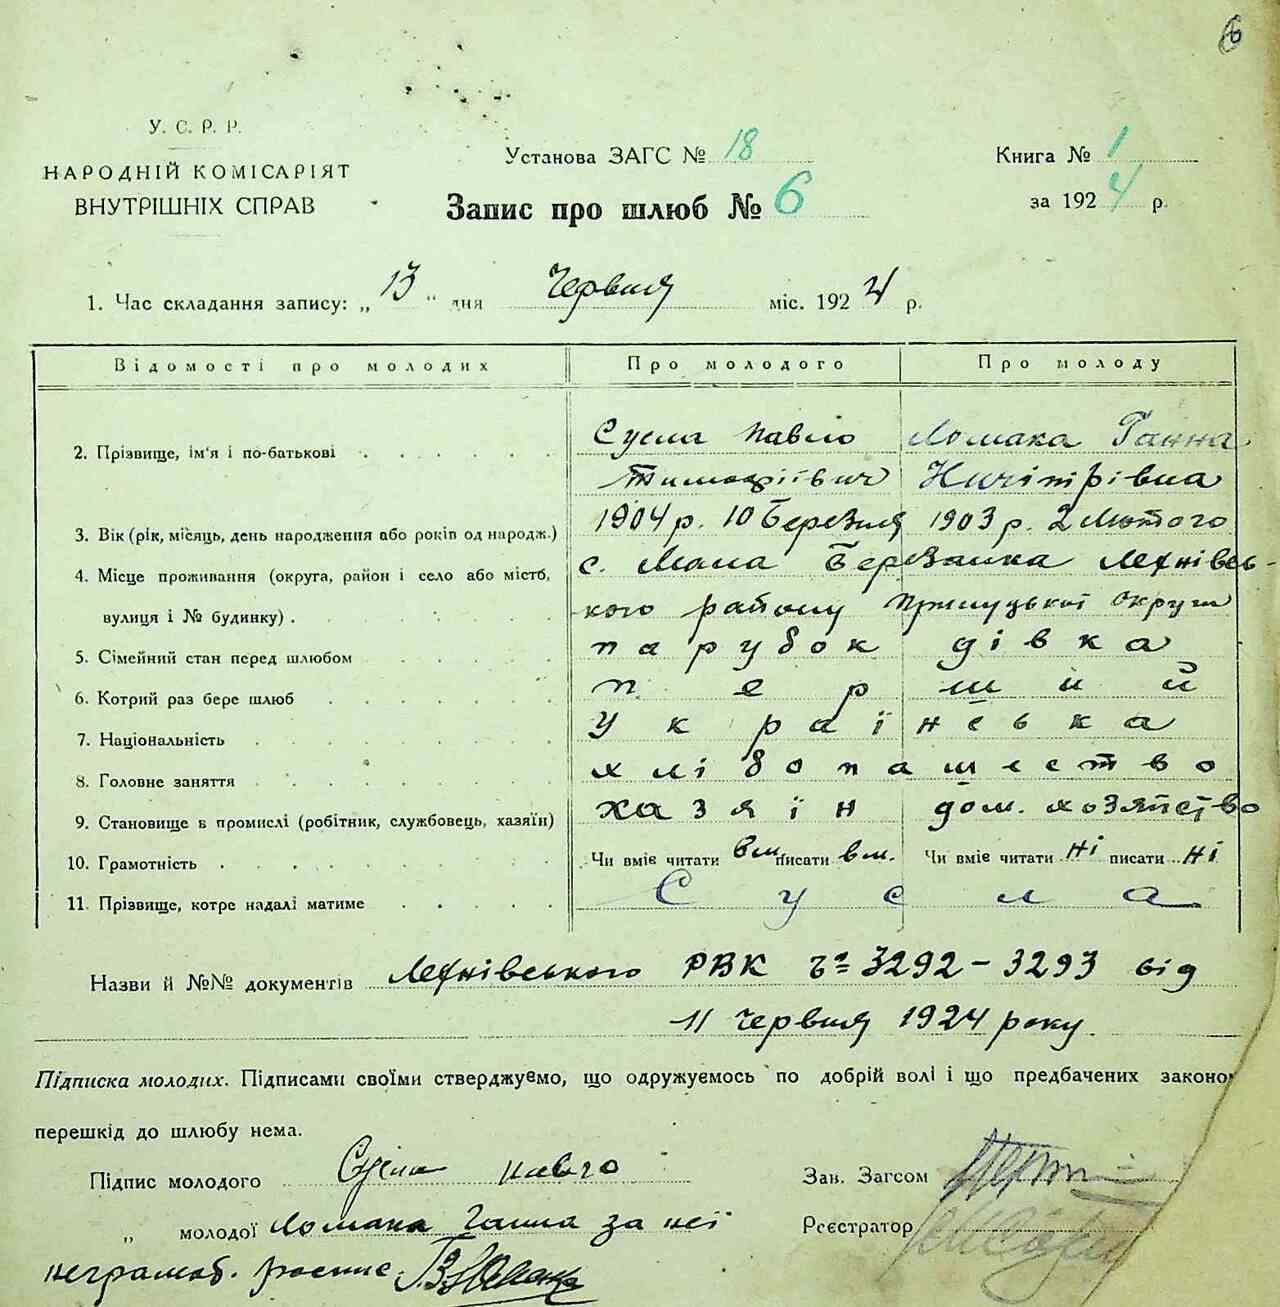 6
У. С. Р. Р.
НАРОДНІЙ КОМІСАРІЯТ
ВНУТРІШНІХ СПРАВ
Установа ЗАГС № 18
Книга № 1
Запис про шлюб № 6
за 1924 р.
1. Час складання запису: „ 13 " дня Червня міс. 1924 р.
Відомості про молодих Про молодого Про молоду
2. Прізвище, ім'я і по-батькові Сусла Павло Ломака Ганна
Тимофіївич Ничіпрівна
3. Вік (рік, місяць, день народження або років од народж.) 1904 р. 10 Березня 1903 р. 2 Мютого
4. Місце проживання (округа, район і село або містб, с. Мала Березанка Лехнівсь-
вулиця і № будинку) . кого району Прилуцької Округи
5. Сімейний стан перед шлюбом парубок дівка
6. Котрий раз бере шлюб перший
7. Національність Українська
8. Головне заняття хлібопашество
9. Становище в промислі (робітник, службовець, хазяїн) хазяїн дом. хозяйство
10. Грамотність Чи вміє читати вм. писати вм. Чи вміє читати ні писати ні
11. Прізвище, котре надалі матиме Сусла
Назви й №№ документів Лехнівського РВК Ч= 3292 - 3293 від
11 Червня 1924 року.
Підписка молодих. Підписами своїми стверджуємо, що одружуємось по добрій волі і що предбачених законо
перешкід до шлюбу нема.
Підпис молодого Сусла Павло
Зав. Загсом
„ молодої Ломака Ганна за неї
Реєстратор
неграмоб. роспис.